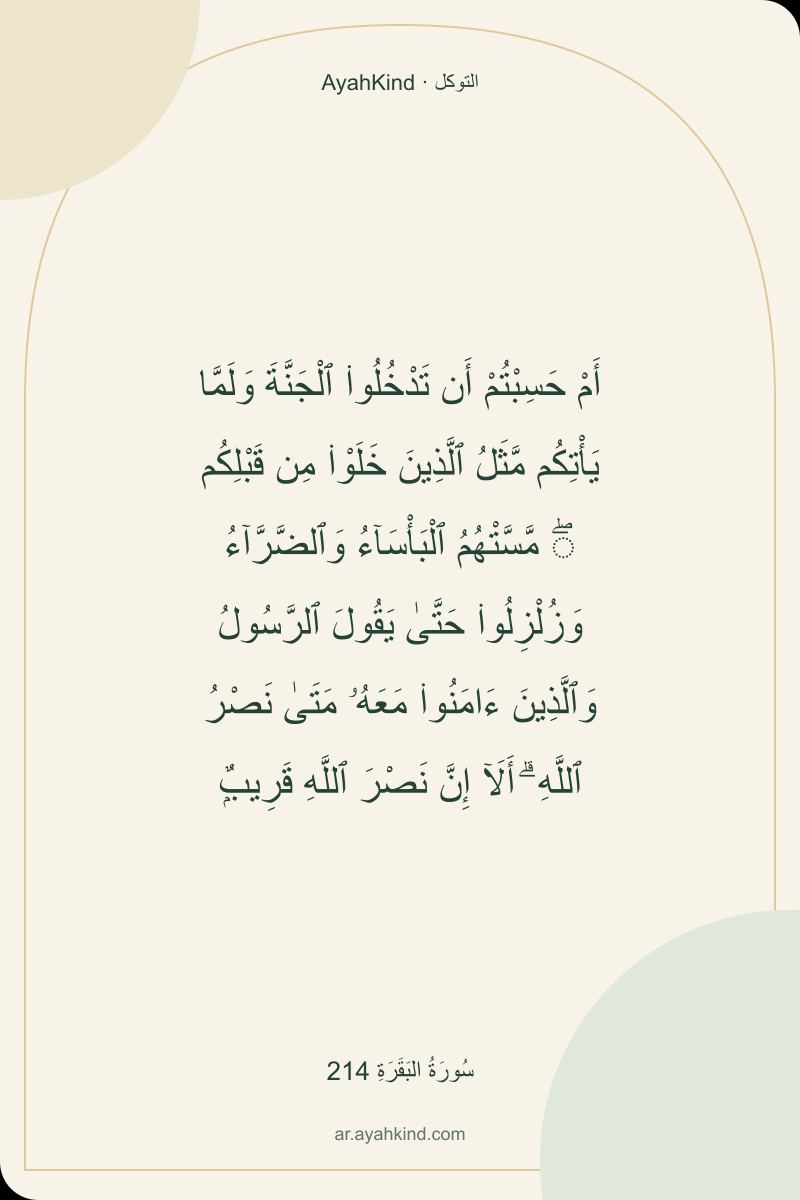 AyahKind · التوكل
أَمْ حَسِبْتُمْ أَن تَدْخُلُوا۟ ٱلْجَنَّةَ وَلَمَّا
يَأْتِكُم مَّثَلُ ٱلَّذِينَ خَلَوْا۟ مِن قَبْلِكُم
ۖ مَّسَّتْهُمُ ٱلْبَأْسَآءُ وَٱلضَّرَّآءُ
وَزُلْزِلُوا۟ حَتَّىٰ يَقُولَ ٱلرَّسُولُ
وَٱلَّذِينَ ءَامَنُوا۟ مَعَهُۥ مَتَىٰ نَصْرُ
ٱللَّهِ ۗ أَلَآ إِنَّ نَصْرَ ٱللَّهِ قَرِيبٌۭ
سُورَةُ البَقَرَةِ 214
ar.ayahkind.com